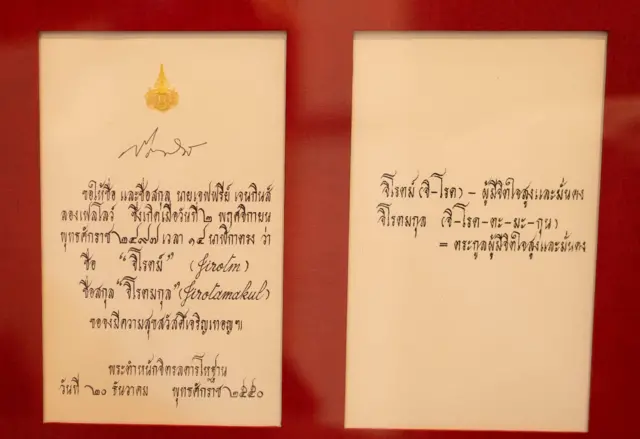 ขอให้ชื่อ และชื่อสกุล นายเจฟฟรีย์ เจนกินส์
ลองเฟลโลว์ ซึ่งเกิดเมื่อวันที่ ๒ พฤศจิกายน
พุทธศักราช ๒๔๙๗ เวลา ๑๔ นาฬิกาตรง ว่า
ชื่อ "จิโรตม์" (Jirotm)
ชื่อสกุล "จิโรตมกุล" (Jirotamakul)
ขอจงมีความสุขสวัสดีเจริญเทอญฯ
พระตำหนักจิตรลดารโหฐาน
วันที่ ๒๐ ธันวาคม พุทธศักราช ๒๕๕๐
จิโรตม์ (จิ-โรต) - ผู้มีจิตใจสูงและมั่นคง
จิโรตมกุล (จิ-โรต-ตะ-มะ-กุน)
= ตระกูลผู้มีจิตใจสูงและมั่นคง